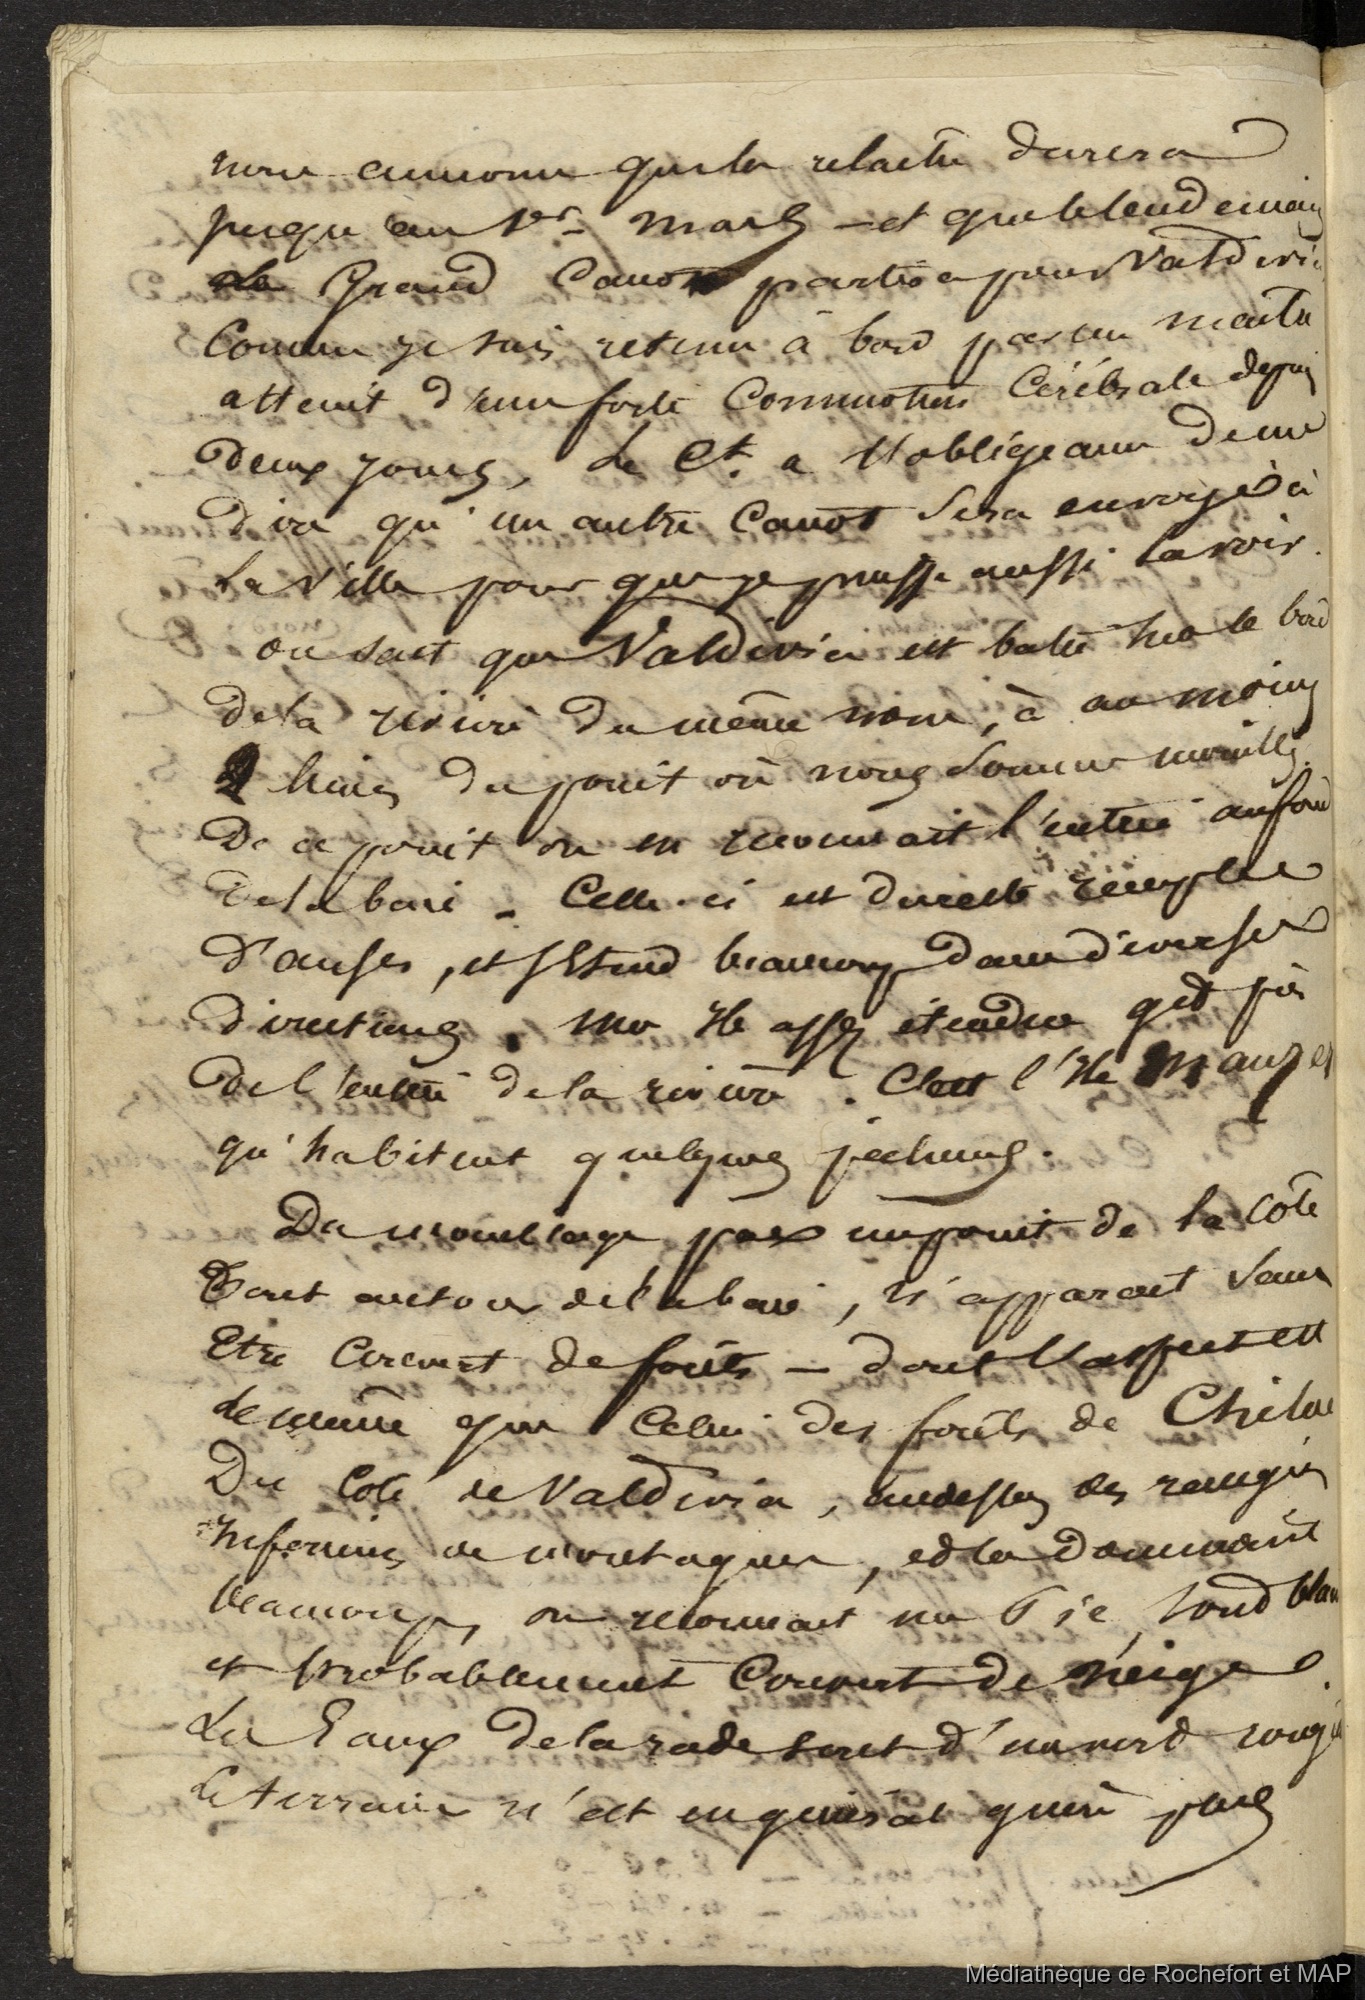 nous annonce que la relache durera
jusqu'au 1er mars — et que le lendemain
le Grand Canot partira pour Valdivia
Comme je suis retenu à bord par un
atteint d'une forte Commotion Cérébrale depuis
deux jours, le Ct. a l'obligeance de me
dire qu'un autre Canot sera envoyé à
la Ville pour que je puisse aussi la voir.
on sait que Valdivia est batie sur le bord
de la riviere du même nom, à au moins
lieues du point où nous sommes mouillés.
De ce point on en reconnait l'entrée au fond
de la baie - Celle-ci est du reste remplie
d'anses, et s'Etend beaucoup dans diverses
directions. une Ile assez étendue git près
de l'entrée de la riviere. C'est l'Ile Manzera
qu'habitent quelques pecheurs.
Du mouillage pas un point de la Côte
tout autour de la baie, n'apparait sans
Etre Couvert de forêts — dont l'aspect est
le même que Celui des forêts de Chiloe
Du Coté de Valdivia, audessus des rangées
inferieures de montagnes, et la dominant
beaucoup, on reconnait un Pic, rond blanc
et probablement Couvert de neige.
Les Eaux de la rade sont d'un verd rougi
Le terrain n'est en général guère plus
Médiathèque de Rochefort et MAP